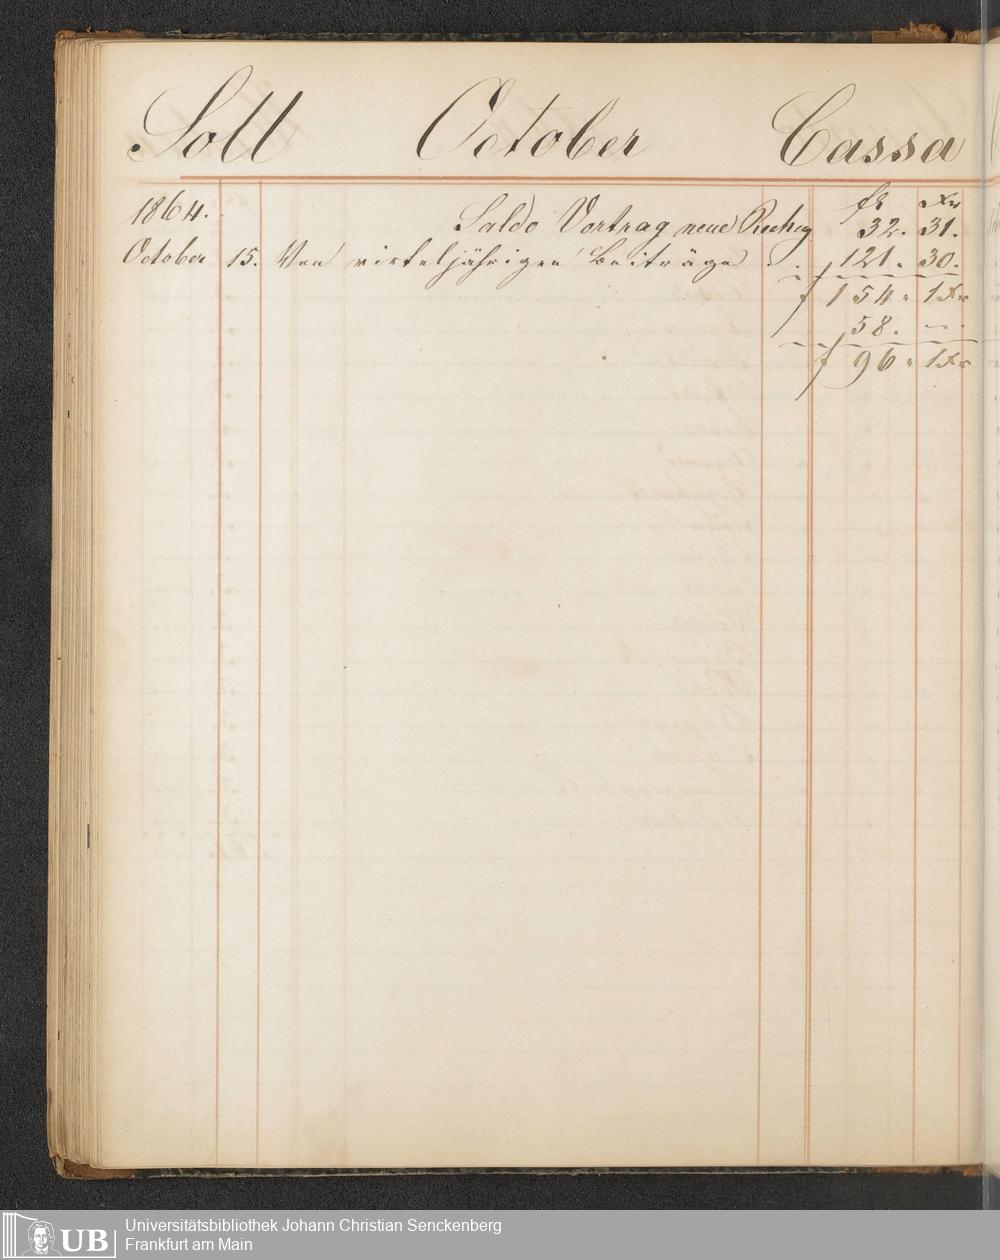 Soll October Cassa
1864. fl Xr
Saldo Vortrag neue Rechng 32. 31.
October 15. Von vierteljährigen Beiträge . . 121. 30.
f 154. 1Xr
58. —.
f 96. 1Xr
UB Universitätsbibliothek Johann Christian Senckenberg
Frankfurt am Main